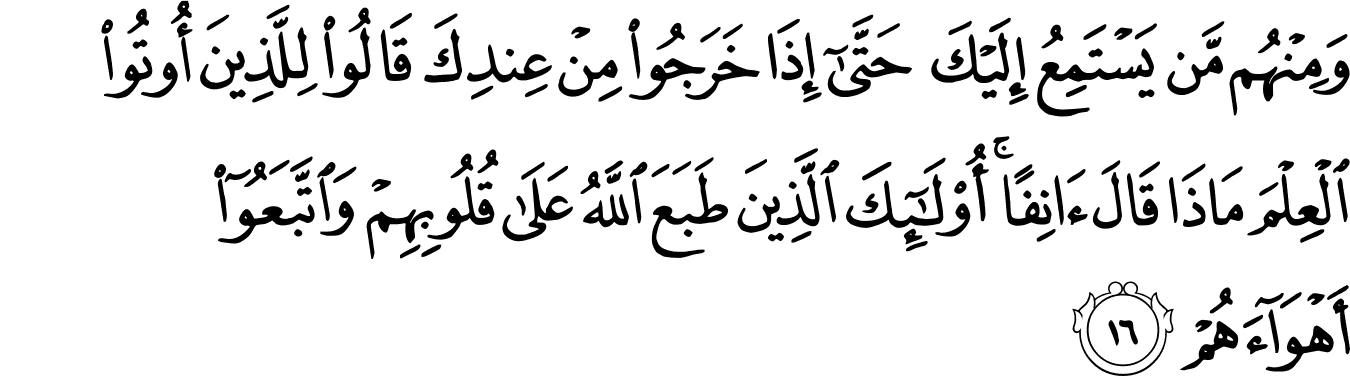 وَمِنۡهُم مَّن يَسۡتَمِعُ إِلَيۡكَ حَتَّىٰٓ إِذَا خَرَجُواْ مِنۡ عِندِكَ قَالُواْ لِلَّذِينَ أُوتُواْ
ٱلۡعِلۡمَ مَاذَا قَالَ ءَانِفًاۚ أُوْلَٰٓئِكَ ٱلَّذِينَ طَبَعَ ٱللَّهُ عَلَىٰ قُلُوبِهِمۡ وَٱتَّبَعُوٓاْ
أَهۡوَآءَهُمۡ ١٦